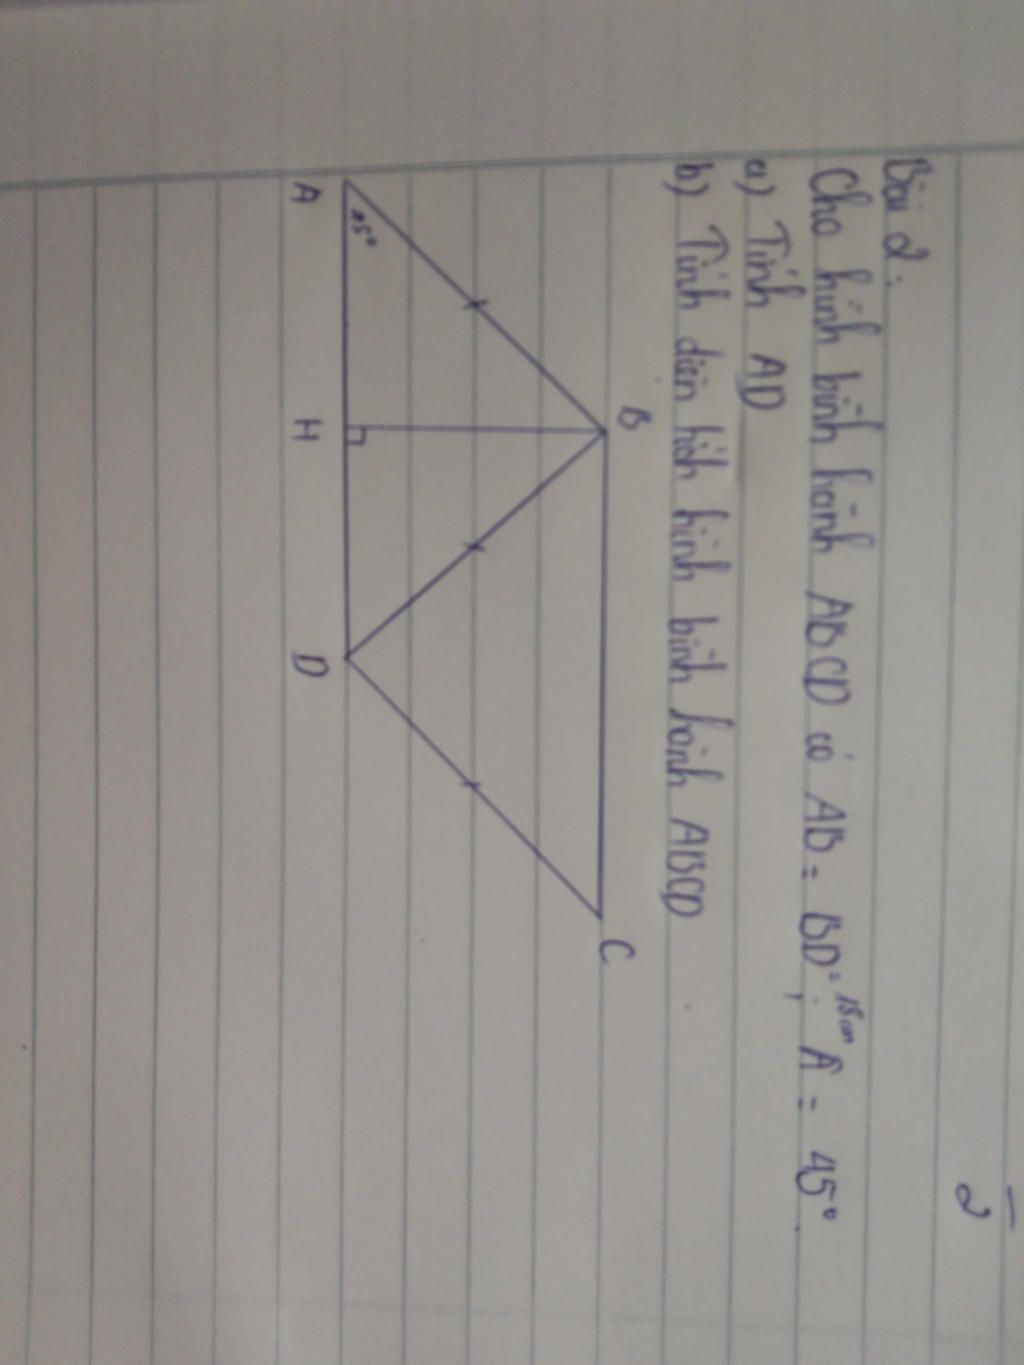 2
Bài 2:
Cho hình bình hành ABCD có AB = BD = 18cm; Â = 45°.
a) Tính AD
b) Tính diện tích hình bình hành ABCD
B C
45°
A H D